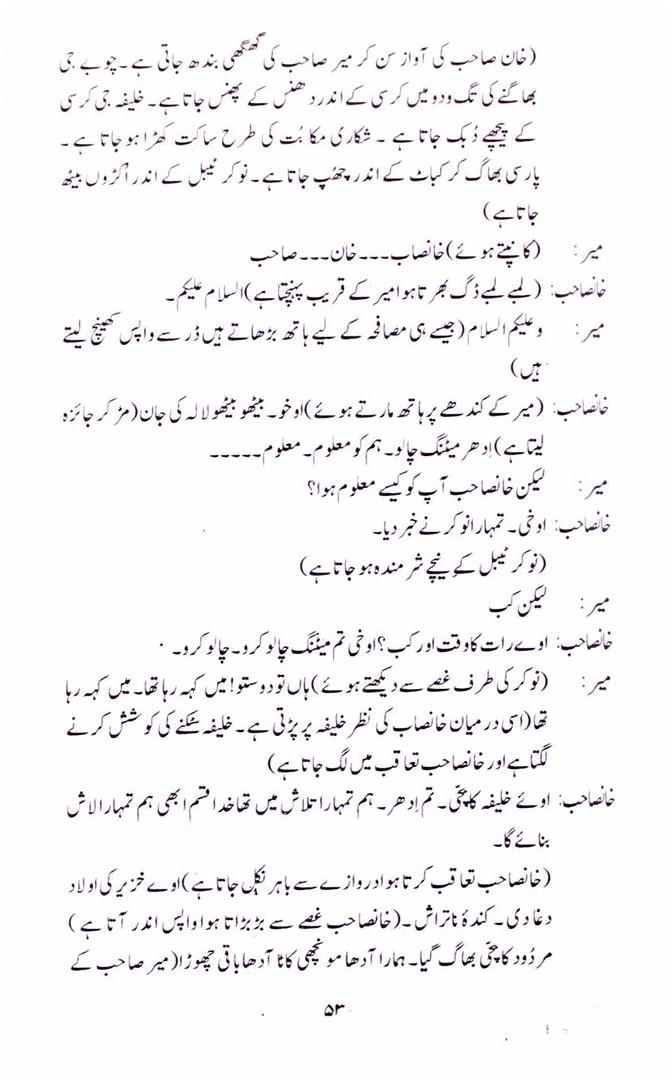 (خان صاحب کی آواز سن کر میر صاحب کی گھگھی بندھ جاتی ہے۔ چوبے جی
بھاگنے کی تگ و دو میں کرسی کے اندر دھنس کے پھنس جاتا ہے۔ خلیفہ جی کرسی
کے پیچھے دُبک جاتا ہے ۔ شکاری مکا بُت کی طرح ساکت کھڑا ہو جاتا ہے ۔
پارسی بھاگ کر کباٹ کے اندر چھُپ جاتا ہے۔ نوکر ٹیبل کے اندر اُکڑوں بیٹھ
جاتا ہے)
میر : (کانپتے ہوئے) خانصاب۔۔۔خان۔۔۔صاحب
خانصاحب: (لمبے لمبے ڈگ بھرتا ہوا میر کے قریب پہنچتا ہے) السلام علیکم۔
میر : وعلیکم السلام (جیسے ہی مصافحہ کے لیے ہاتھ بڑھاتے ہیں ڈر سے واپس کھینچ لیتے
ہیں)
خانصاحب: (میر کے کندھے پر ہاتھ مارتے ہوئے) اوخو۔ بیٹھو بیٹھو لالہ کی جان (مڑ کر جائزہ
لیتا ہے) اِدھر میٹنگ چالو۔ ہم کو معلوم۔ معلوم۔۔۔۔۔
میر : لیکن خانصاحب آپ کو کیسے معلوم ہوا؟
خانصاحب: اوخی۔ تمہارا نوکر نے خبر دیا۔
(نوکر ٹیبل کے نیچے شرمندہ ہو جاتا ہے)
میر : لیکن کب
خانصاحب: اوے رات کا وقت اور کب؟ اوخی تم میٹنگ چالو کرو۔ چالو کرو۔
میر : (نوکر کی طرف غصے سے دیکھتے ہوئے) ہاں تو دوستو! میں کہہ رہا تھا۔ میں کہہ رہا
تھا (اسی درمیان خانصاب کی نظر خلیفہ پر پڑتی ہے۔ خلیفہ سٹکنے کی کوشش کرنے
لگتا ہے اور خانصاحب تعاقب میں لگ جاتا ہے)
خانصاحب: اوئے خلیفہ کا چیّ۔ تم اِدھر۔ ہم تمہارا تلاش میں تھا خدا قسم ابھی ہم تمہارا لاش
بنائے گا۔
(خانصاحب تعاقب کرتا ہوا دروازے سے باہر نکل جاتا ہے) اوے خنزیر کی اولاد
دغا دی۔ کندۂ ناتراش ۔ (خانصاحب غصے سے بڑبڑاتا ہوا واپس اندر آتا ہے )
مردُود کا چیّ بھاگ گیا۔ ہمارا آدھا مونچھی کاٹا آدھا باقی چھوڑا (میر صاحب کے
۵۳